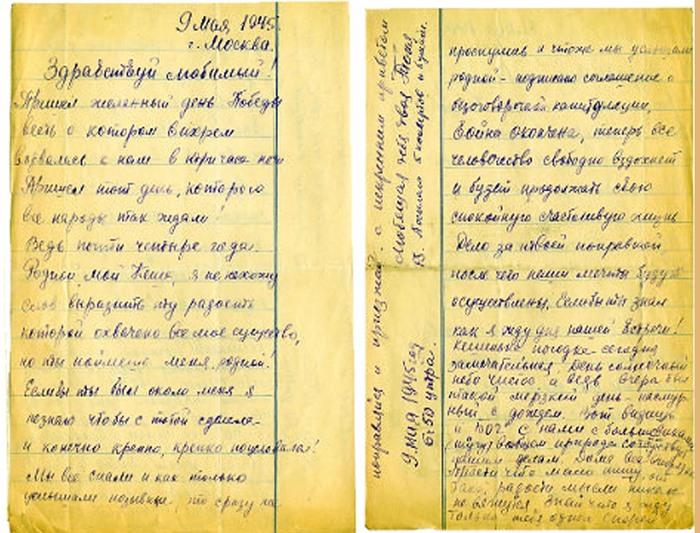 9 Мая 1945.
г. Москва.
Здравствуй любимый!
Пришел желанный день Победы
весть о котором вихрем
ворвалась к нам в три часа ночи
Пришел тот день, которого
все народы так ждали!
Ведь почти четыре года.
Родной мой Кеша, я не нахожу
слов выразить ту радость
которой охвачено все мое существо,
но ты поймешь меня, родной!
Если бы ты был около меня я
не знаю чтобы с тобой сделала
и конечно крепко, крепко поцеловала!
Мы все спали и как только
услышали позывные, то сразу же
проснулись и что же мы услышали
родной - подписано соглашение о
безоговорочной капитуляции,
Война окончена, теперь все
человечество свободно вздохнет
и будет продолжать свою
спокойную счастливую жизнь
Дело за твоей поправкой
после чего наши мечты будут
осуществлены. Если бы ты знал
как я жду дня нашей встречи!
Кешенька погодка сегодня
замечательная. День солнечный
небо чистое а ведь вчера был
такой мерзкий день - пасмур
ный с дождем. Вот видишь
и бог с нами с большевиками
(шучу) вообщем природа
нашим делам. Дома все
чего мало пишу,
радости мысли никак
не вяжутся. Знай что я жду
только тебя одного
поправляйся и приезжай. С искренним приветом
Любящая тебя твоя Тоня
Посылаю 5 конвертов и бумаги.
9 мая 1945 год
6:50 утра.